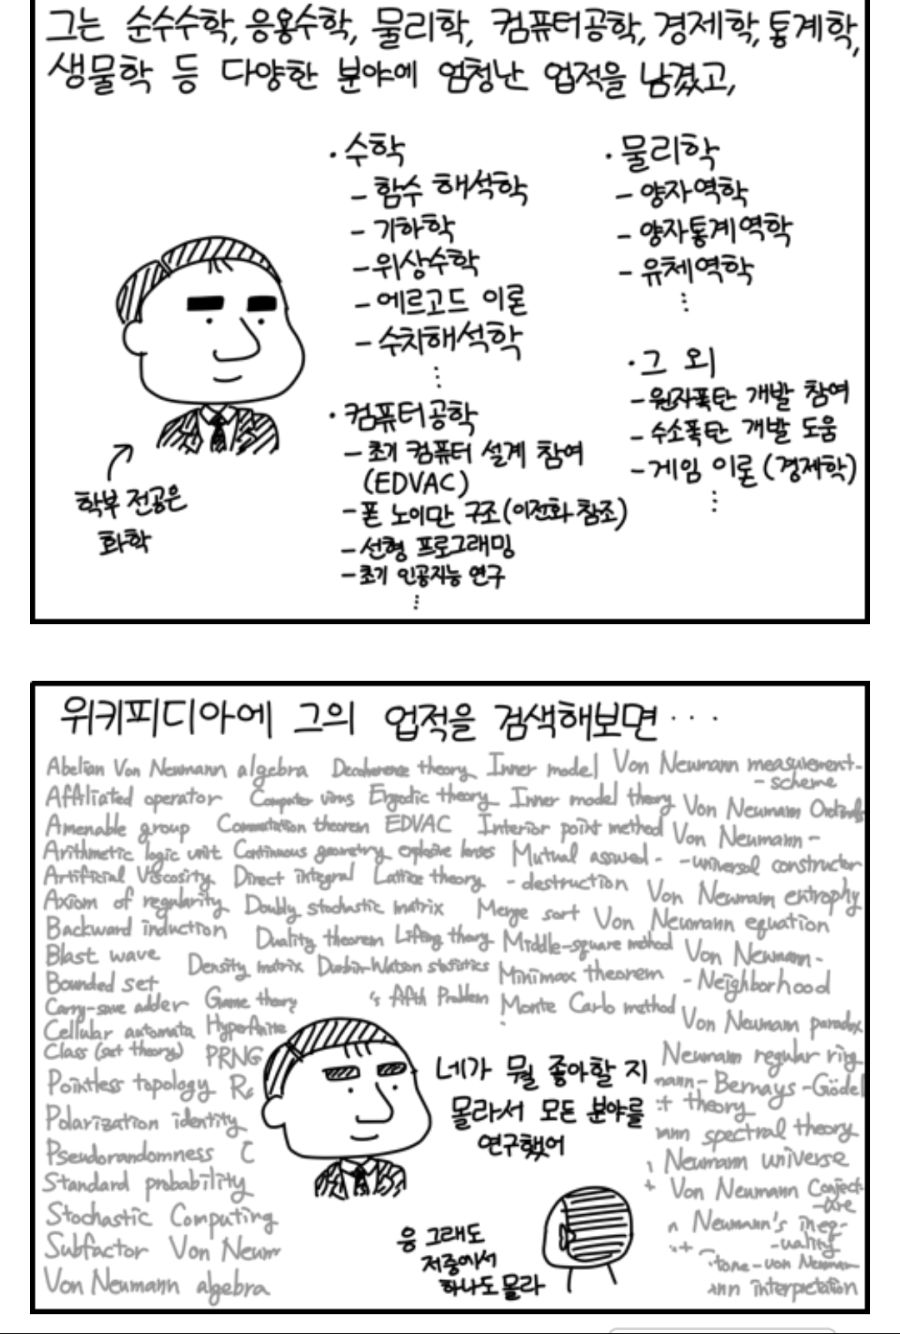 그는 순수수학, 응용수학, 물리학, 컴퓨터공학, 경제학, 통계학,
생물학 등 다양한 분야에 엄청난 업적을 남겼고,
· 수학
- 함수 해석학
- 기하학
- 위상수학
- 에르고드 이론
- 수치해석학
⋮
· 컴퓨터공학
- 초기 컴퓨터 설계 참여
(EDVAC)
- 폰 노이만 구조(이전화 참조)
- 선형 프로그래밍
- 초기 인공지능 연구
⋮
· 물리학
- 양자역학
- 양자통계역학
- 유체역학
⋮
· 그 외
- 원자폭탄 개발 참여
- 수소폭탄 개발 도움
- 게임 이론 (경제학)
⋮
학부 전공은
화학
위키피디아에 그의 업적을 검색해보면 ···
Abelian Von Neumann algebra
Affiliated operator
Amenable group
Arithmetic logic unit
Artificial Viscosity
Axiom of regularity
Backward induction
Blast wave
Bounded set
Carry-save adder
Cellular automata
Class (set theory)
Pointless topology
Polarization identity
Pseudorandomness
Standard probability
Stochastic Computing
Subfactor Von Neum
Von Neumann algebra
Decoherence theory
Computer virus Ergodic theory
Commutation theorem EDVAC
Continuous geometry explosive lenses
Direct integral Lattice theory
Doubly stochastic matrix
Duality theorem Lifting theory
Density matrix Durbin-Watson statistics
Game theory 's fifth Problem
Hyperfinite
PRNG
Inner model
Inner model theory
Interior point method
Mutual assured-
-destruction
Merge sort
Middle-square method
Minimax theorem
Monte Carlo method
Von Neumann measurement-
-scheme
Von Neumann Ordinals
Von Neumann-
-universal constructor
Von Neumann entrophy
Von Neumann equation
Von Neumann-
-Neighborhood
Von Neumann paradox
Neumann regular ring
mann-Bernays-Gödel
t theory
ann spectral theory
Neumann universe
Von Neumann Conject-
-ure
n Neumann's ineq-
-uality
tone-von Neuman
ann interpretation
네가 뭘 좋아할 지
몰라서 모든 분야를
연구했어
응 그래도
저중에서
하나도 몰라